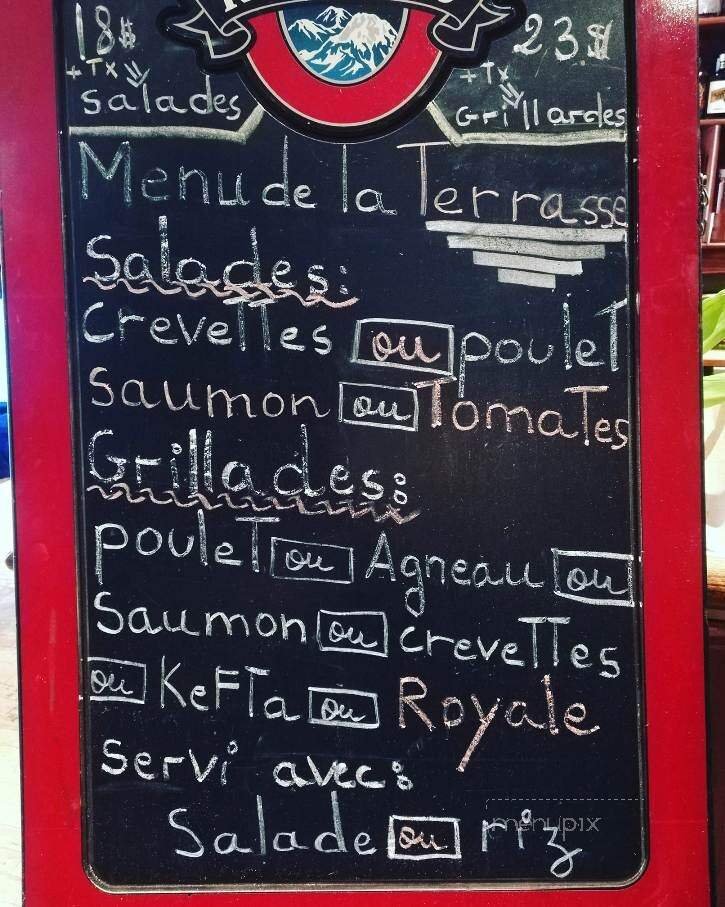 18$
+Tx
Salades
23$
+Tx
Grillardes
Menu de la Terrasse
Salades:
Crevettes ou poulet
Saumon ou Tomates
Grillades:
poulet ou Agneau ou
Saumon ou crevettes
ou Kefta ou Royale
servi avec:
Salade ou riz
menupix